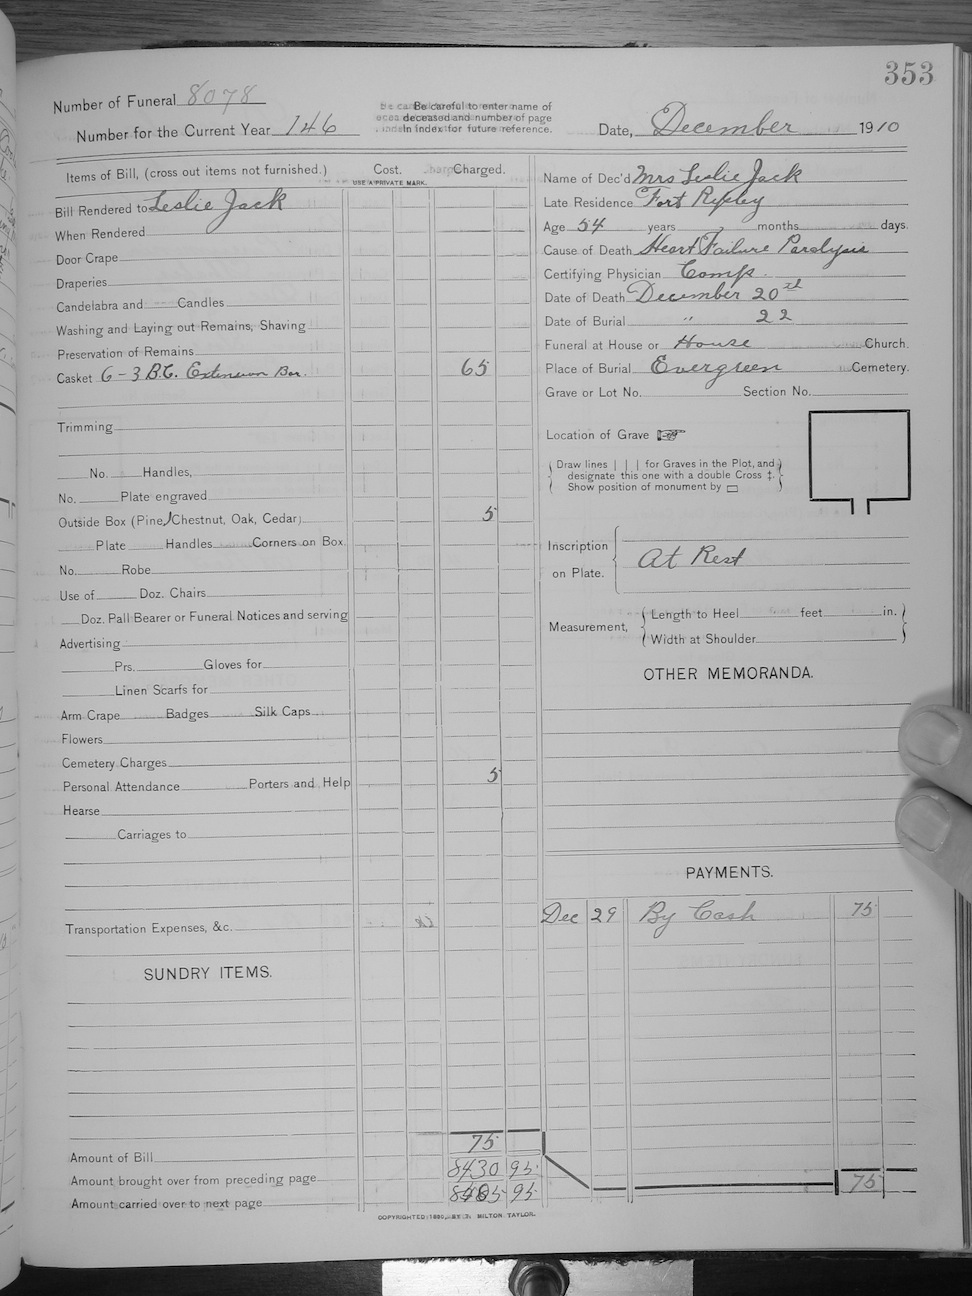 353
Number of Funeral 8078
Number for the Current Year 146
Be careful to enter name of
deceased and number of page
in index for future reference.
Date, December 1910
Items of Bill, (cross out items not furnished.) Cost. Charged.
USE A PRIVATE MARK.
Bill Rendered to Leslie Jack
When Rendered
Door Crape
Draperies
Candelabra and Candles
Washing and Laying out Remains, Shaving
Preservation of Remains
Casket 6-3 B.C. Extension Bar. 65
Trimming
No. Handles,
No. Plate engraved
Outside Box (Pine, Chestnut, Oak, Cedar) 5
Plate Handles Corners on Box.
No. Robe
Use of Doz. Chairs
Doz. Pall Bearer or Funeral Notices and serving
Advertising
Prs. Gloves for
Linen Scarfs for
Arm Crape Badges Silk Caps
Flowers
Cemetery Charges
Personal Attendance Porters and Help 5
Hearse
Carriages to
Transportation Expenses, &c.
SUNDRY ITEMS.
Amount of Bill 75
Amount brought over from preceding page 8430 95
Amount carried over to next page 95
Name of Dec'd Mrs Leslie Jack
Late Residence Fort Ripley
Age 54 years months days.
Cause of Death Heart Failure Paralysis
Certifying Physician Camp.
Date of Death December 20th
Date of Burial " 22
Funeral at House or House Church.
Place of Burial Evergreen Cemetery.
Grave or Lot No. Section No.
Location of Grave
Draw lines | | | for Graves in the Plot, and
designate this one with a double Cross ‡.
Show position of monument by ▭
Inscription
on Plate. At Rest
Measurement, Length to Heel feet in.
Width at Shoulder
OTHER MEMORANDA.
PAYMENTS.
Dec 29 By Cash 75
75
COPYRIGHTED 1890, BY J. MILTON TAYLOR.